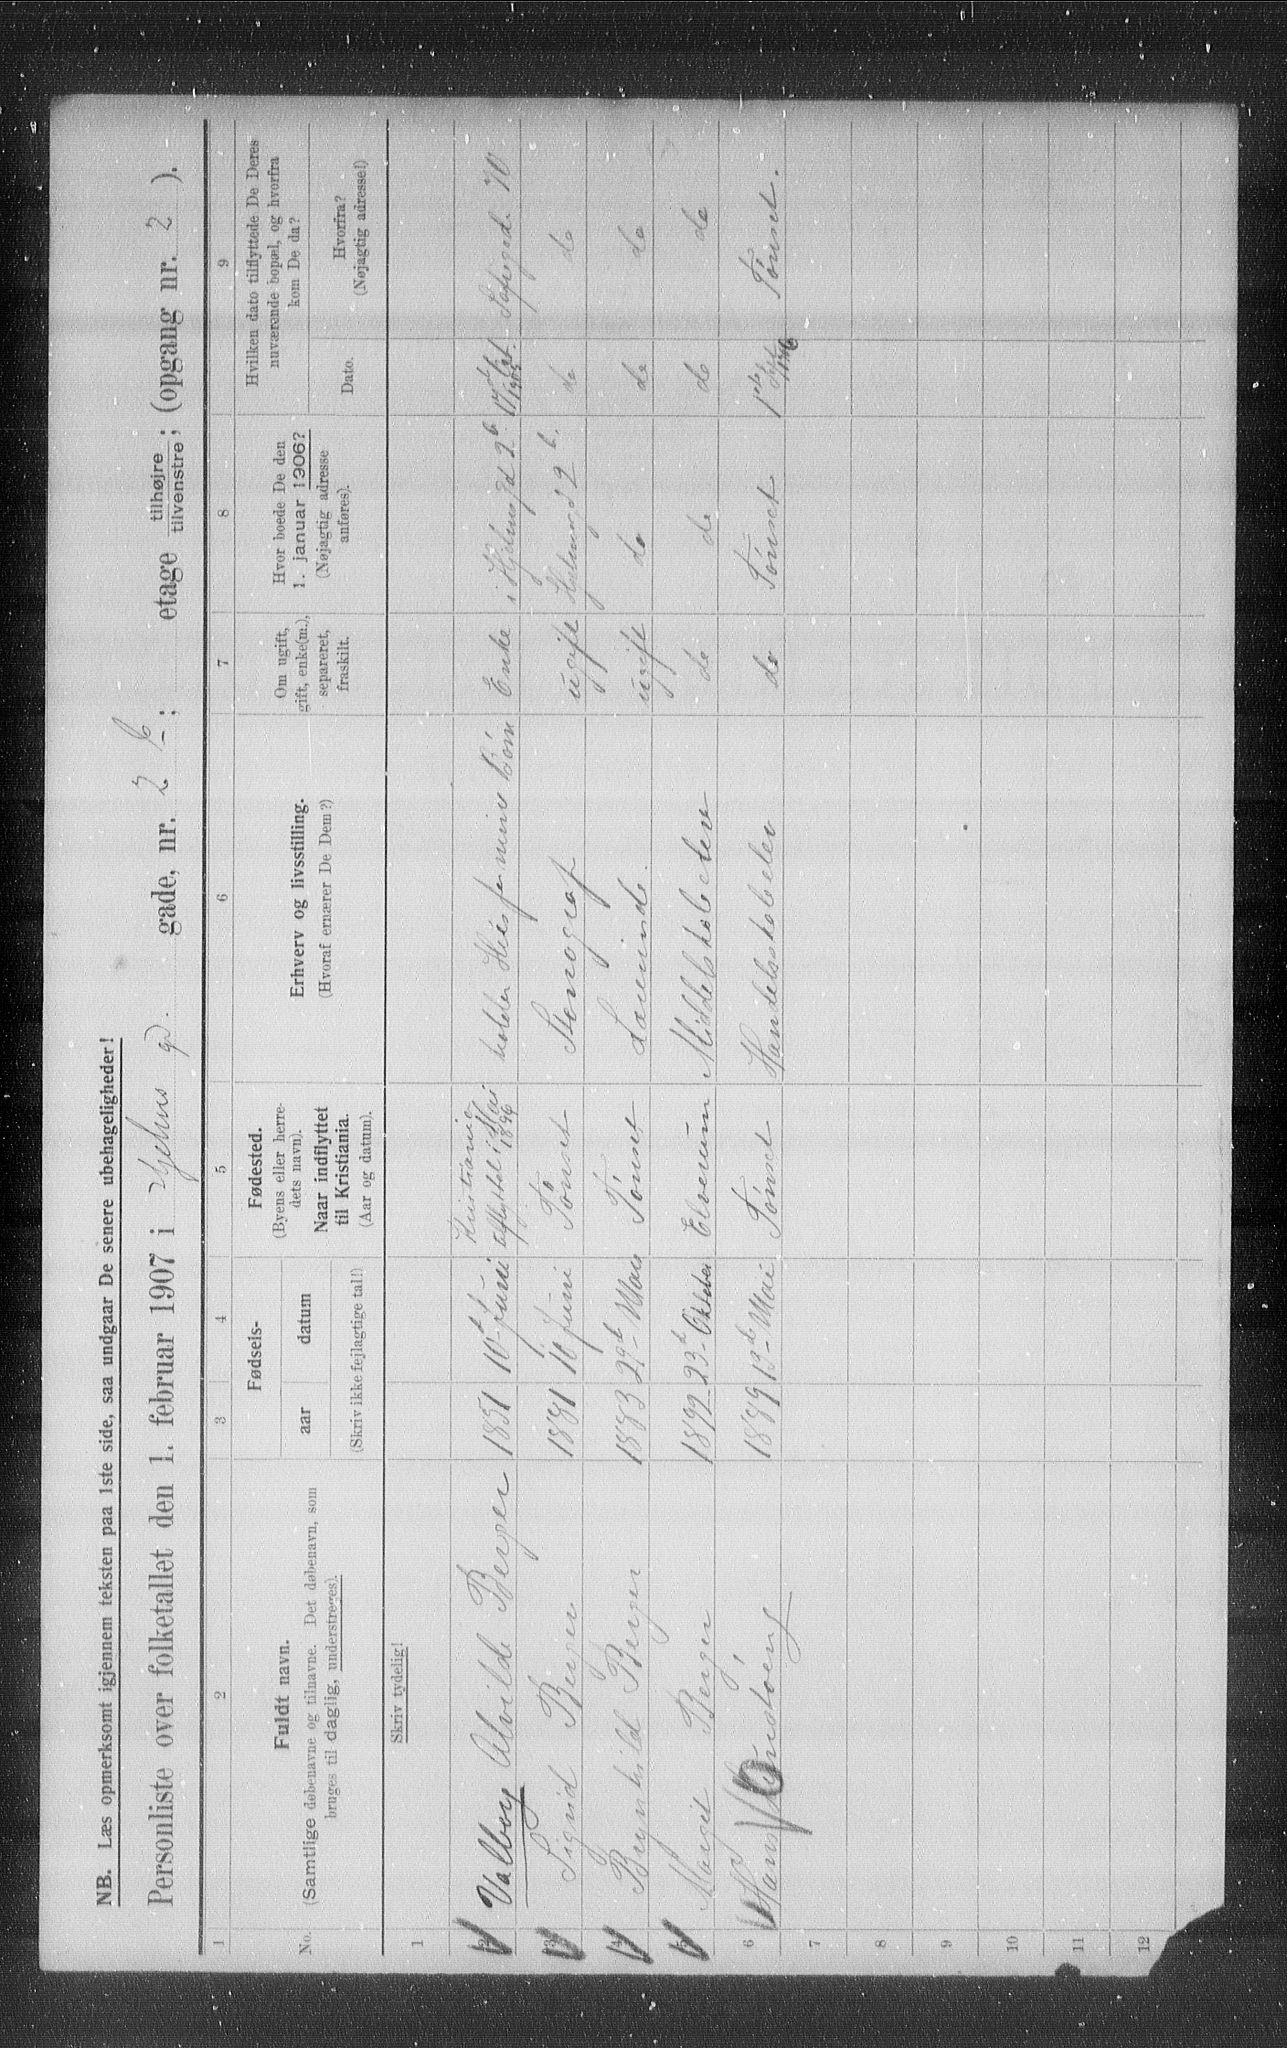 NB. Læs opmerksomt igjennem teksten paa 1ste side, saa undgaar De senere ubehageligheder!
Personliste over folketallet den 1. februar 1907 i Hjelms gd. gade, nr. 2 b; etage tilhøjre tilvenstre; (opgang nr. 2 ).
1 2 3 4 5 6 7 8 9
No.
Fuldt navn.
(Samtlige døbenavne og tilnavne. Det døbenavn, som
bruges til daglig, understreges).
Fødsels-
aar datum
(Skriv ikke fejlagtige tal!)
Fødested.
(Byens eller herre-
dets navn).
Naar indflyttet
til Kristiania.
(Aar og datum).
Erhverv og livsstilling.
(Hvoraf ernærer De Dem?)
Om ugift,
gift, enke(m.),
separeret,
fraskilt.
Hvor boede De den
1. januar 1906?
(Nøjagtig adresse
anføres).
Hvilken dato tilflyttede De Deres
nuværende bopæl, og hvorfra
kom De da?
Dato.
Hvorfra?
(Nøjagtig adresse!)
Skriv tydelig!
1
2 Valborg Alvilde Berger 1851 10 Juni Kristiania Mai 1896 holder Hus for mine Børn Enke i Hjelmsgd 2 b. 1905 70
3 Sigrid Berger 1881 10 Juni Tønset Stenograf ugift 2 b. do do
4 Brynhild Berger 1883 29 Mai Tønset Lærerinde. ugift do do do
5 Margit Berger 1892 23 Oktober Elverum Middelskoleelev do do do do
6 Hans 1889 13 Mai Tønset Handelsskoleelev do Tønset 1 1906 Tønset.
7
8
9
10
11
12